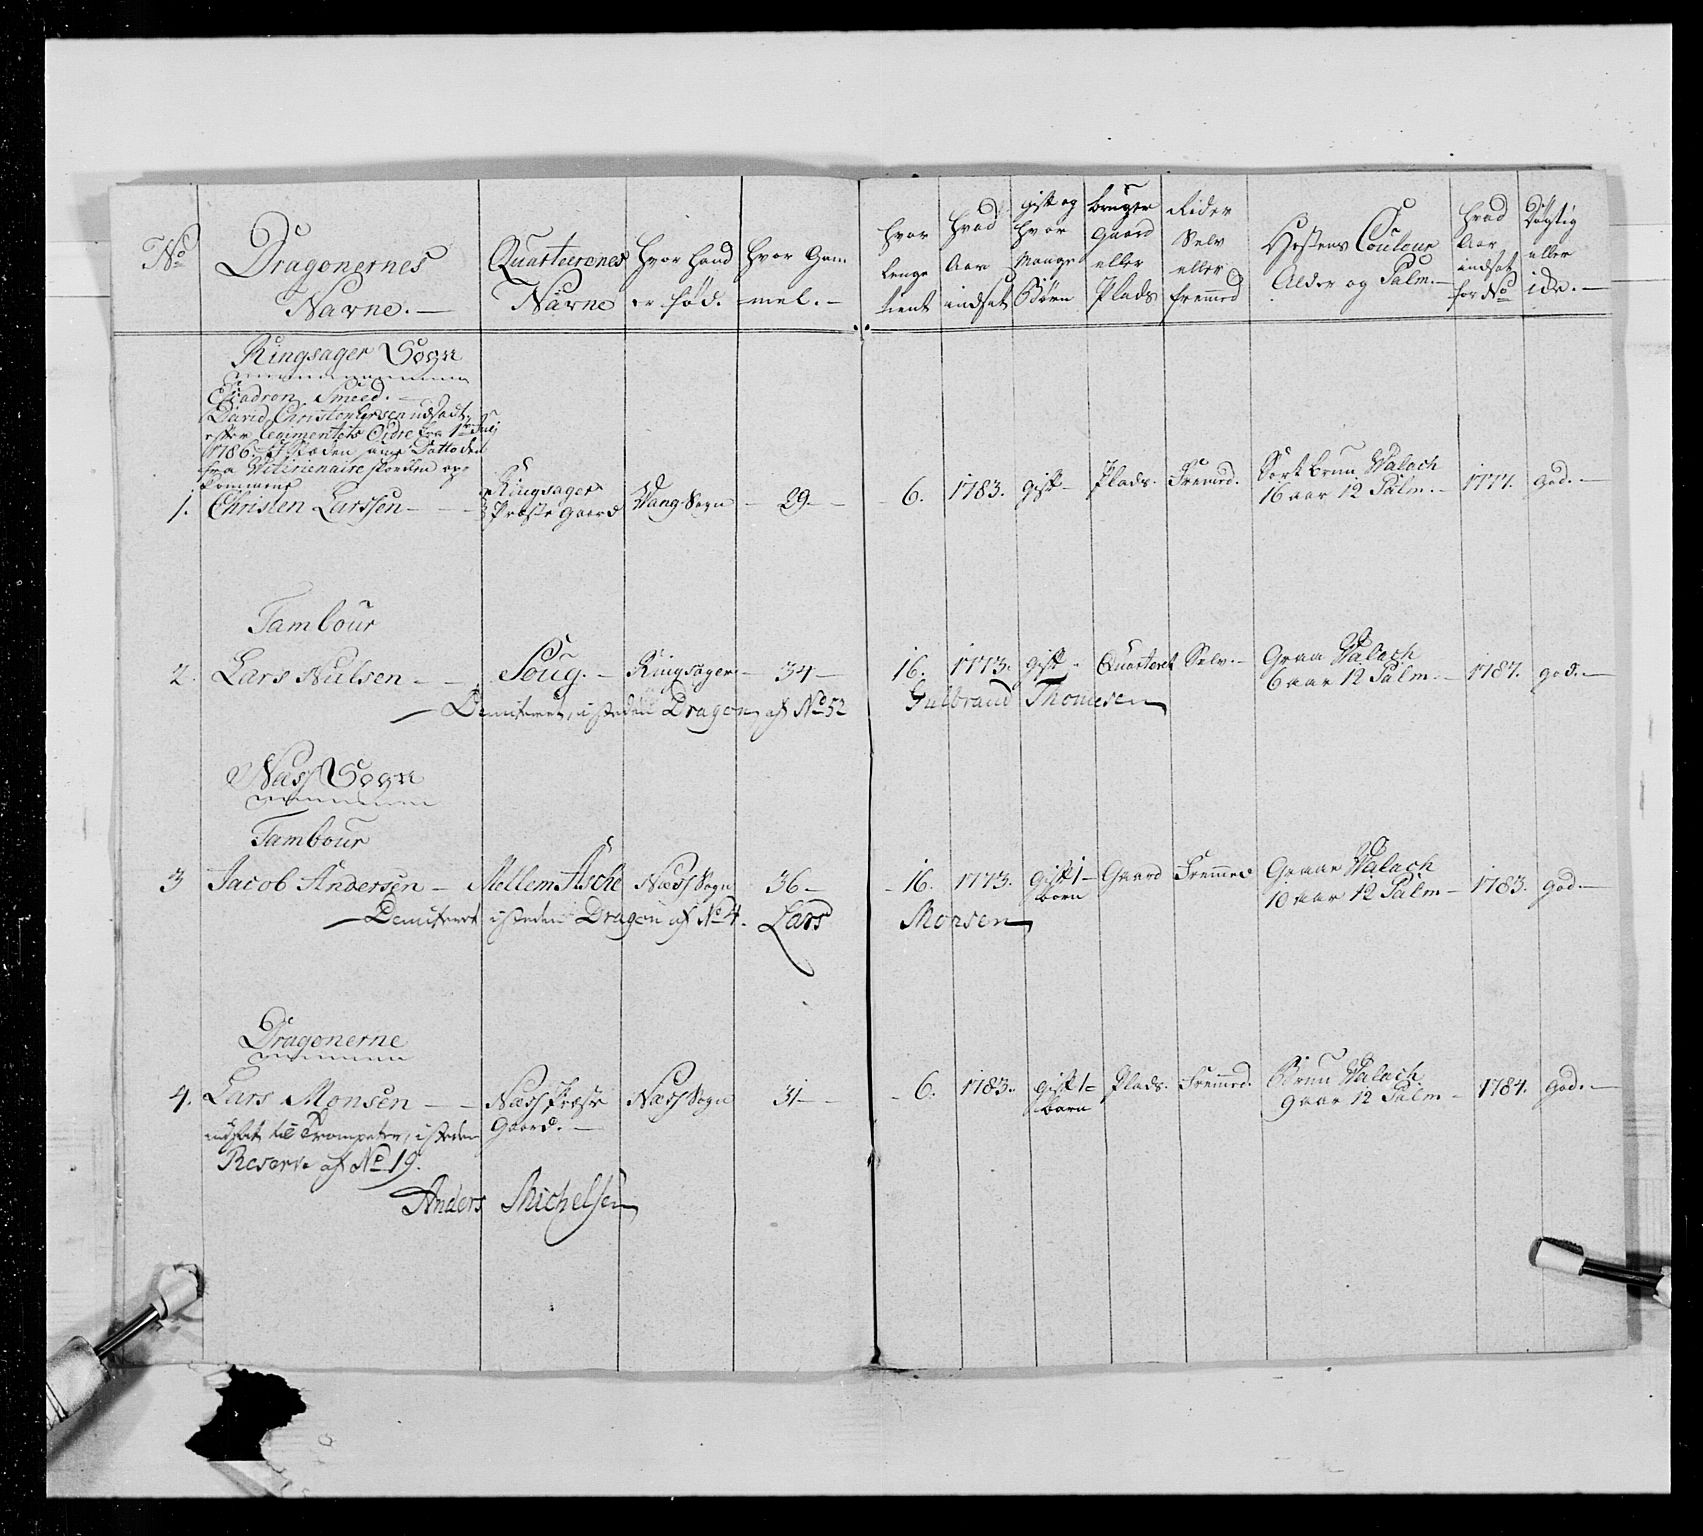 No
Dragonernes Navne. —
Quarteerenes Navne
Hvor hand er fød.
Hvor Gam mel. —
Hvor lenge tient
Hvad Aar indsat
gift og hvor Mange Børn
bruger Gaard eller Plads
Rider Selv eller fremmed
Hestens Couleur Alder og Palm. —
Hvad Aar indsat for No
Døgtig eller icke. —
Ringsager Sogn
Esqadron Smeed. —
David Christophersen udsadt
efter Regimentets Ordre fra 1te Julj
1786.
fra Vetirienaire skoelen op
kommene
1. Christen Larssen — — — Ringsager Præste Gaard Wang Sogn — 29 — — 6. 1783. gift — Plads. Fremed. Sort brun Walach 16 aar 12 Palm. — 1777. god. —
Tambour
2. Lars Nulsen — — Soug. — Ringsager — 34 — 16. 1773. gift — Quarteret Selv. — Graa Walach 6 aar 12 Palm. — 1787. god. —
— Demiteret, isteden Dragon af No 52 Gulbrand Thomesen
Næss Sogn
Tambour
3 Jacob Andersen — Mellem Asche Næss Sogn 36 — — 16. 1773. Gift 1 — born Gaard Fremmed Graae Walach 10 aar 12 Palm — 1783. god. —
— Demiteret isteden Dragon af No 4. Lars Monsen
Dragonerne
4. Lars Monsen — — Næss Præste Gaard. — Næss Sogn 31 — — — 6. 1783. gift 1 = barn Plads. Fremmed. Brun Walach 9 aar 12 Palm — 1784. god. —
udsat til Trompeter, isteden
Reserve af No 19.
Anders Michelsen